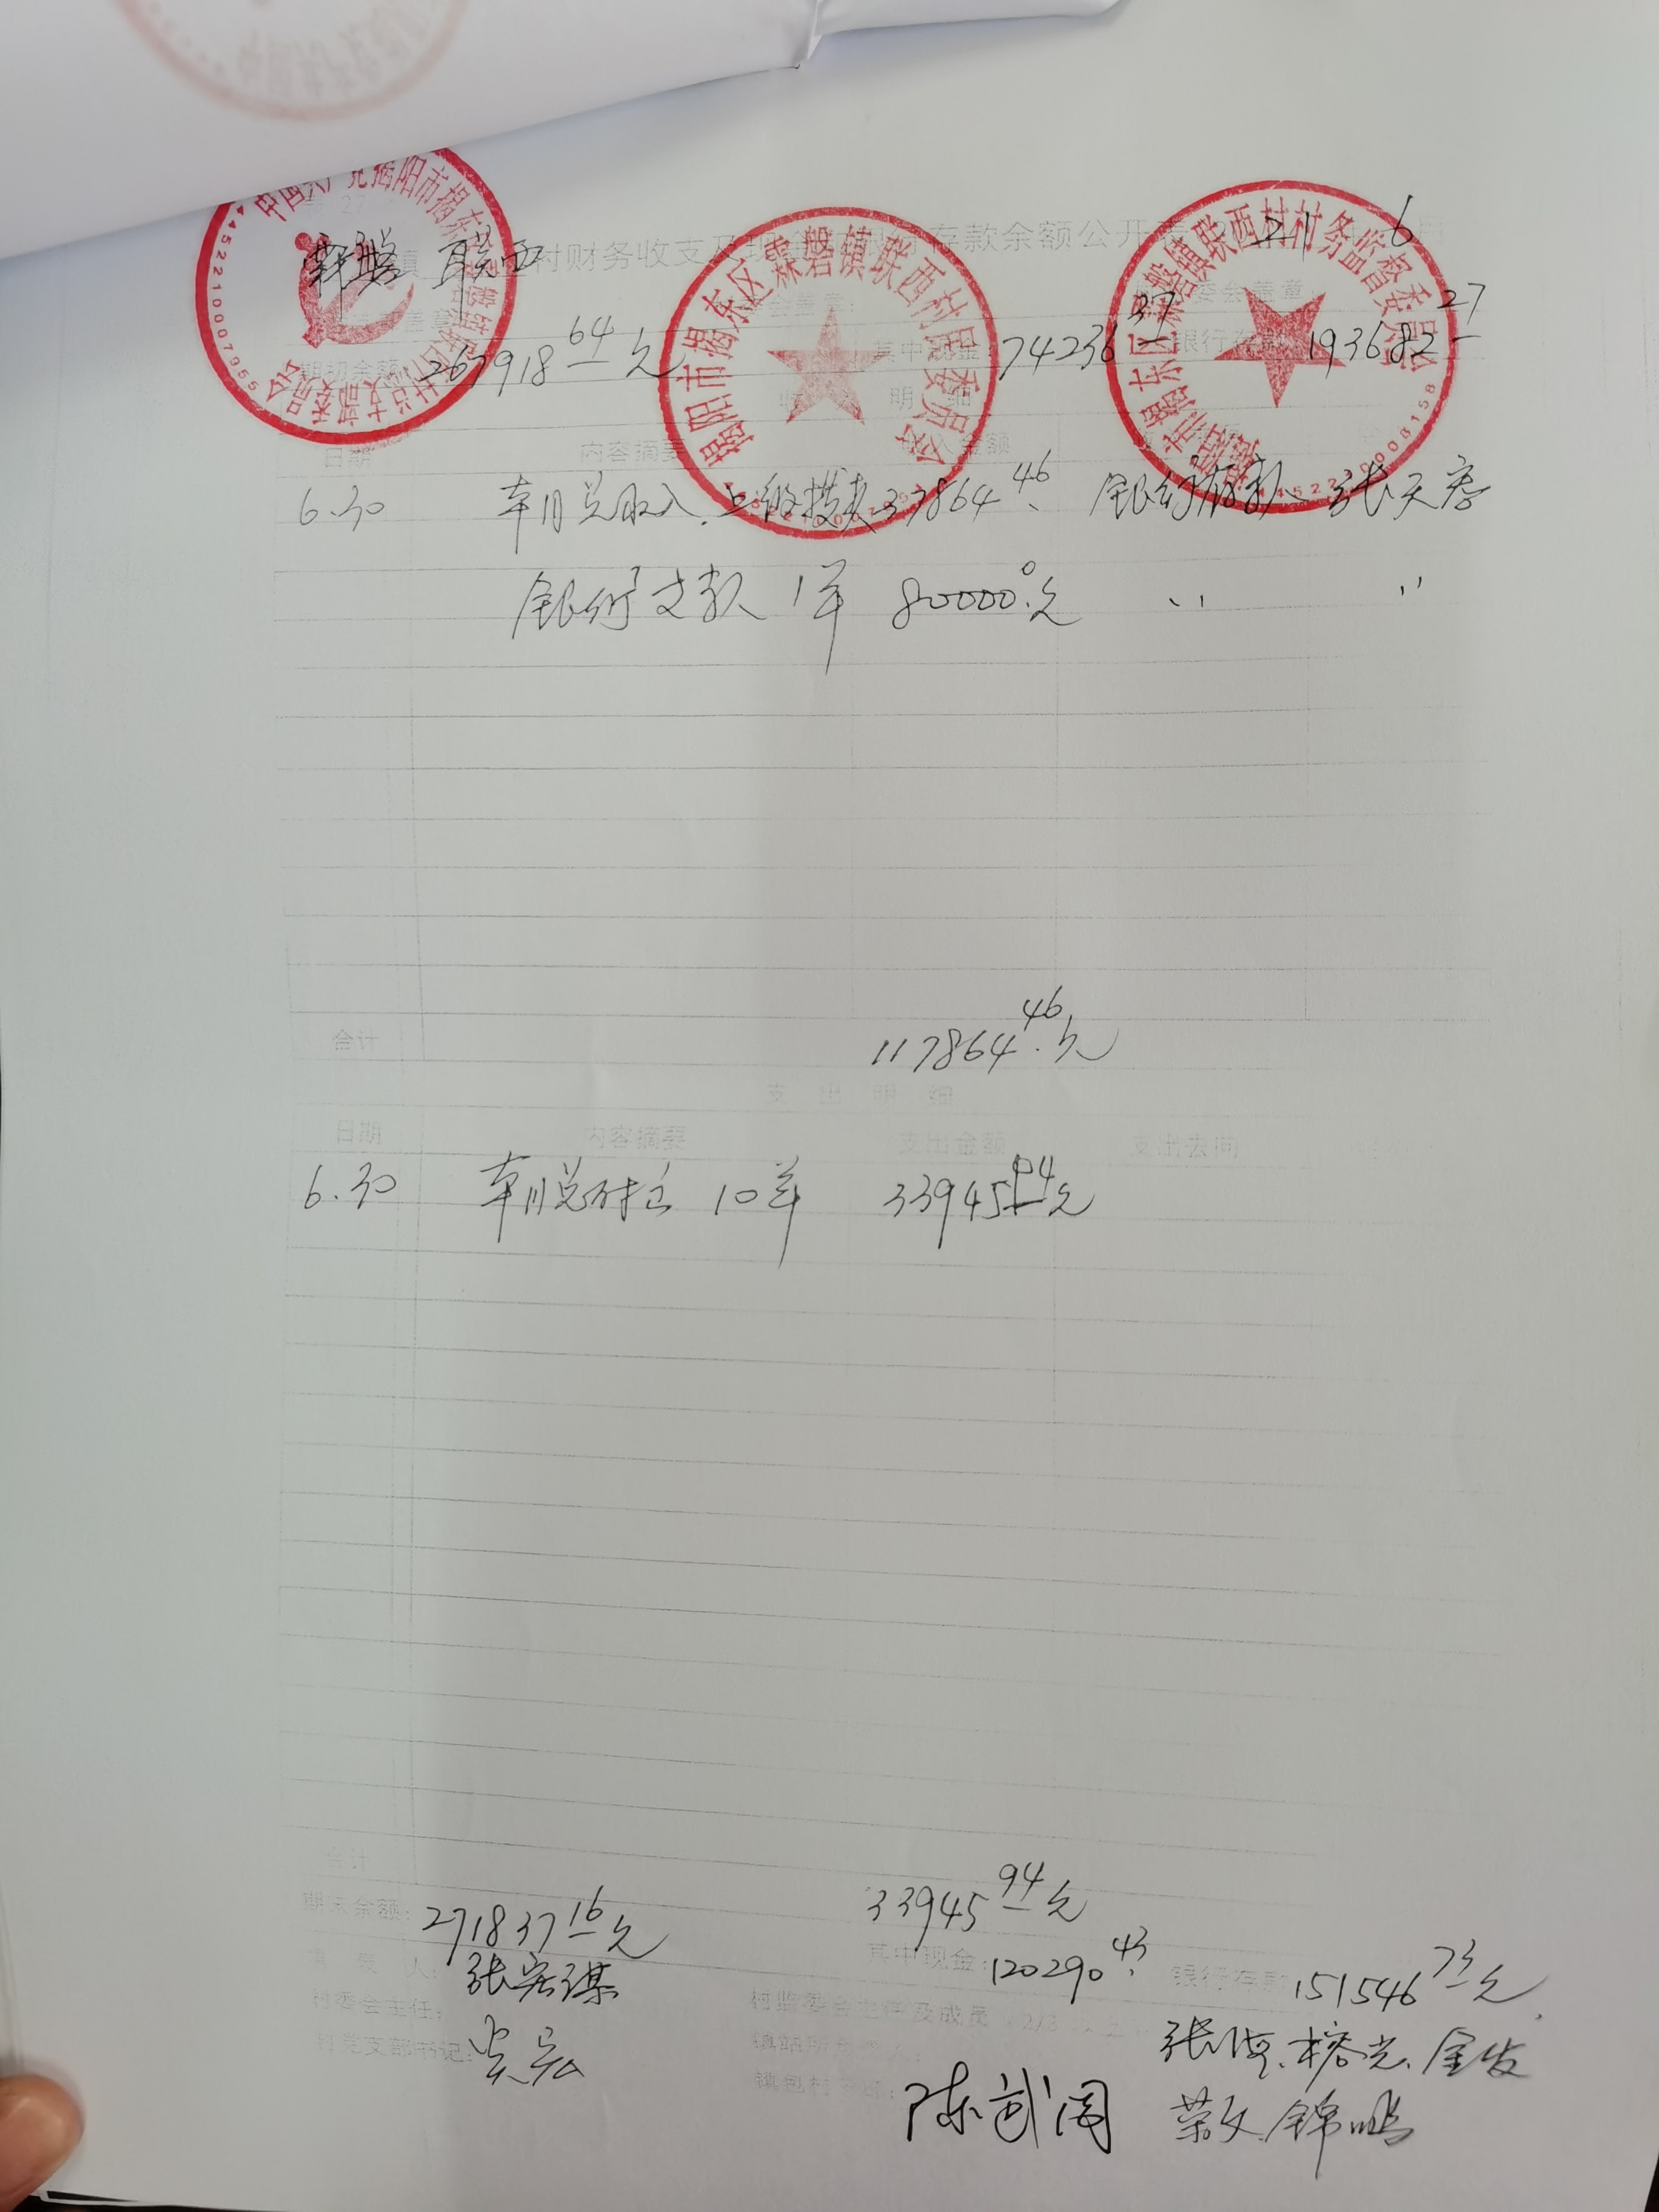 霖磐镇 联西村财务收支及现金银行存款余额公开 21 6
中国共产党揭阳市揭东
4452210007955
揭阳市揭东区霖磐镇联西村村民委员会
揭阳市揭东区霖磐镇联西村村务监督委员会
期初余额:267918 64 元 其中现金:74236 37 银行存款 193682 27
收 明 细
日期 内容摘要 收入金额
6.30 本月总收入.上级拨来 37864 46 银行存款 张天
银行支款 1单 80000 0 元 〃 〃
合计 117864 46 元
支 出 明 细
日期 内容摘要 支出金额 支出去向
6.30 本月总对支 10单 33945 94 元
合计 33945 94 元
期末余额:271837 16 元 其中现金:120290 43 银行存款 151546 73 元
人: 张宏谋
村委会主任: 村监委会主任及成员 2/3 张 榕光、金发
村党支部书记: 荣文 锦鹏
镇包村 陈武闻